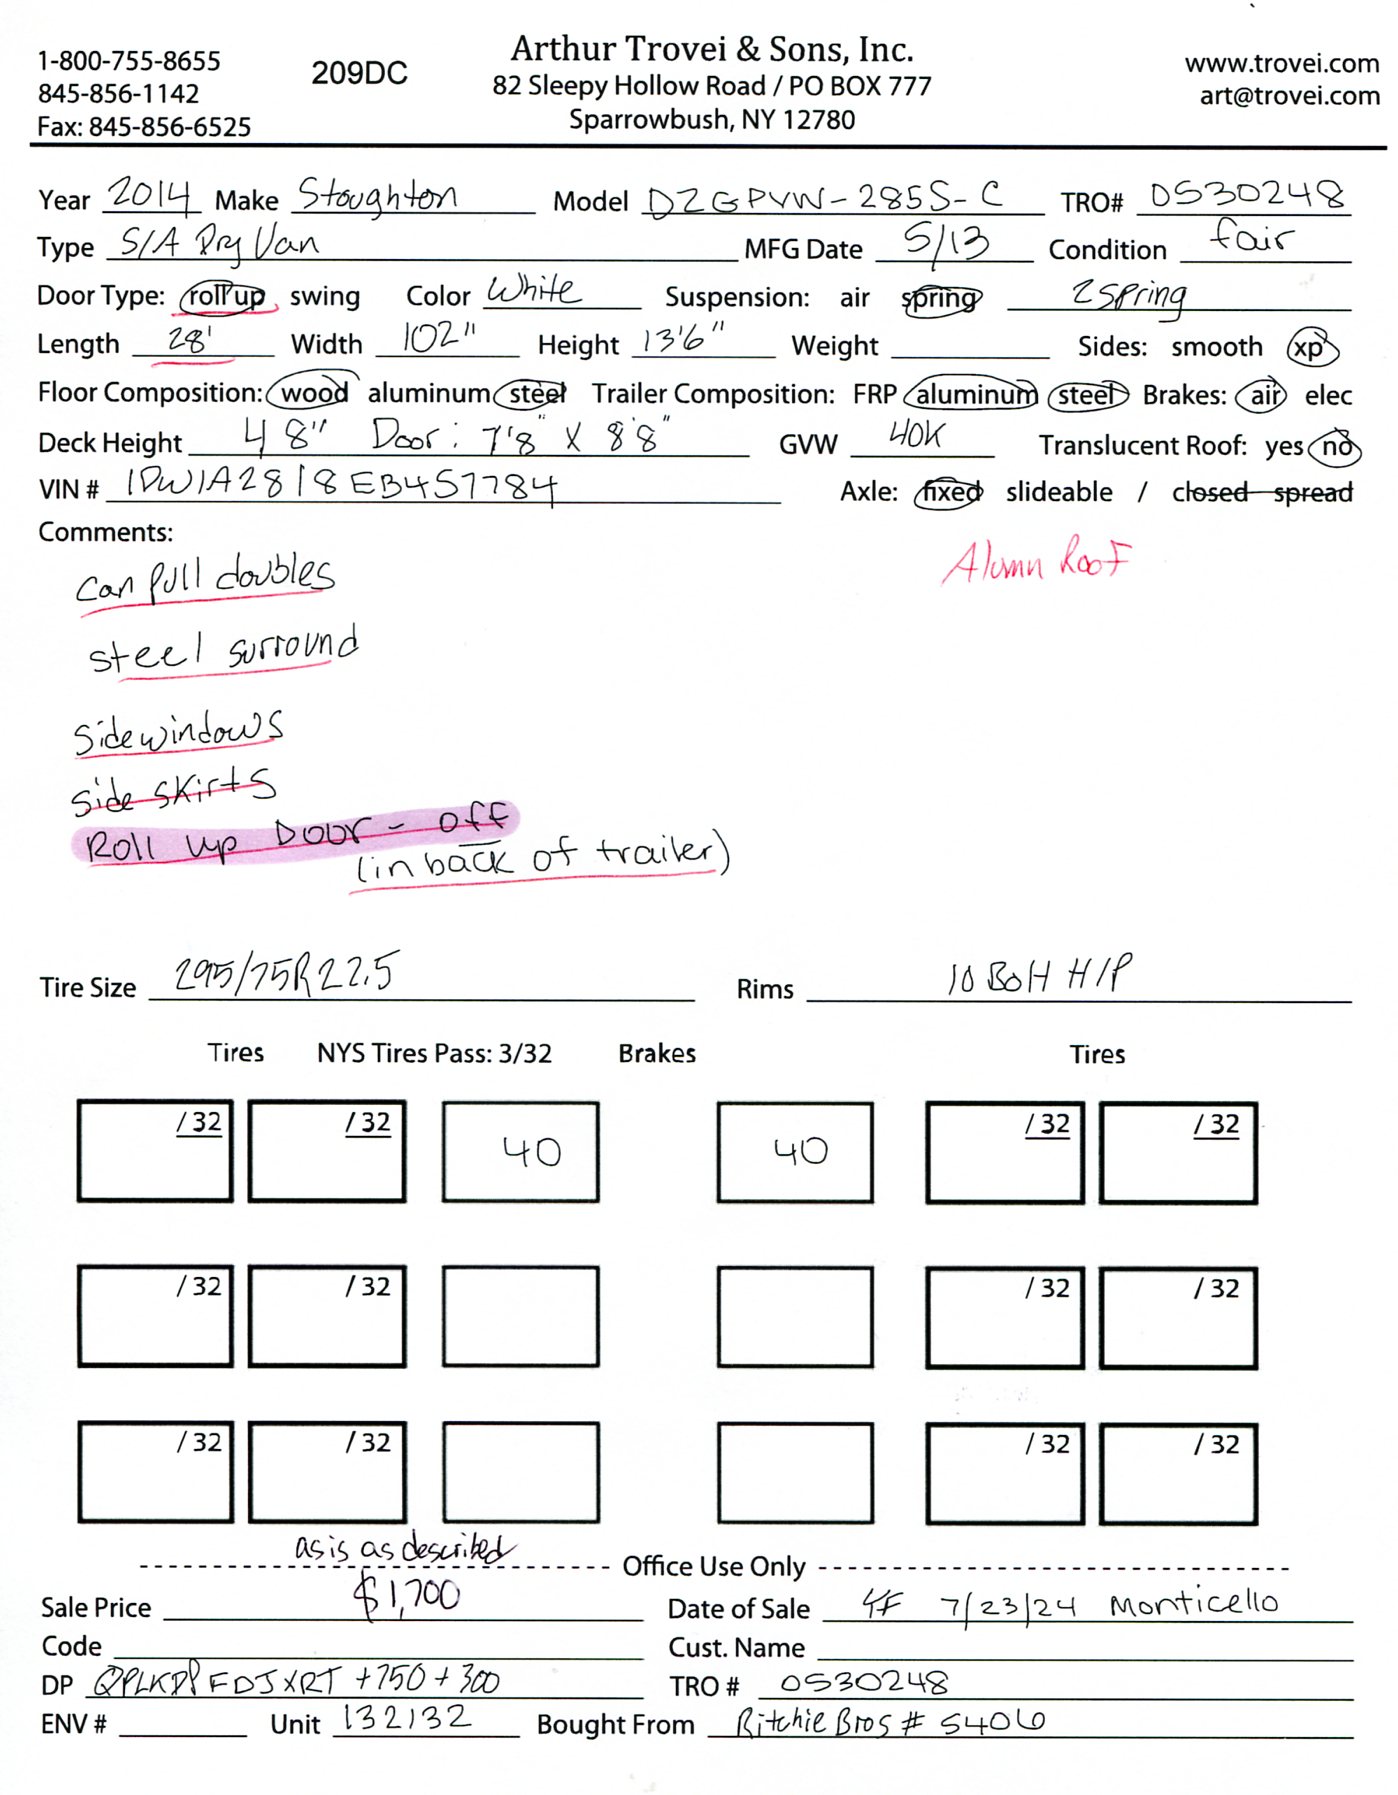 1-800-755-8655
845-856-1142
Fax: 845-856-6525
209DC
Arthur Trovei & Sons, Inc.
82 Sleepy Hollow Road / PO BOX 777
Sparrowbush, NY 12780
www.trovei.com
art@trovei.com
Year 2014 Make Stoughton Model DZGPVW-285S-C TRO# 0530248
Type S/A Dry Van MFG Date 5/13 Condition fair
Door Type: roll up swing Color White Suspension: air spring 2 spring
Length 28' Width 102" Height 13'6" Weight Sides: smooth xp
Floor Composition: wood aluminum steel Trailer Composition: FRP aluminum steel Brakes: air elec
Deck Height 48" Door: 7'8" X 8'8" GVW 40K Translucent Roof: yes no
VIN # 1DW1A2818EB457784 Axle: fixed slideable / closed spread
Comments:
Alumn Roof
can pull doubles
steel surround
side windows
side skirts
Roll up Door - off
(in back of trailer)
Tire Size 295/75R22.5 Rims 10 Bolt H/P
Tires NYS Tires Pass: 3/32 Brakes Tires
/32 /32 40 40 /32 /32
/32 /32 /32 /32
/32 /32 /32 /32
as is as described
Office Use Only
Sale Price $1,700 Date of Sale 7/23/24 Monticello
Code Cust. Name
DP +750+300 TRO # 0530248
ENV # Unit 132132 Bought From Ritchie Bros # 5406